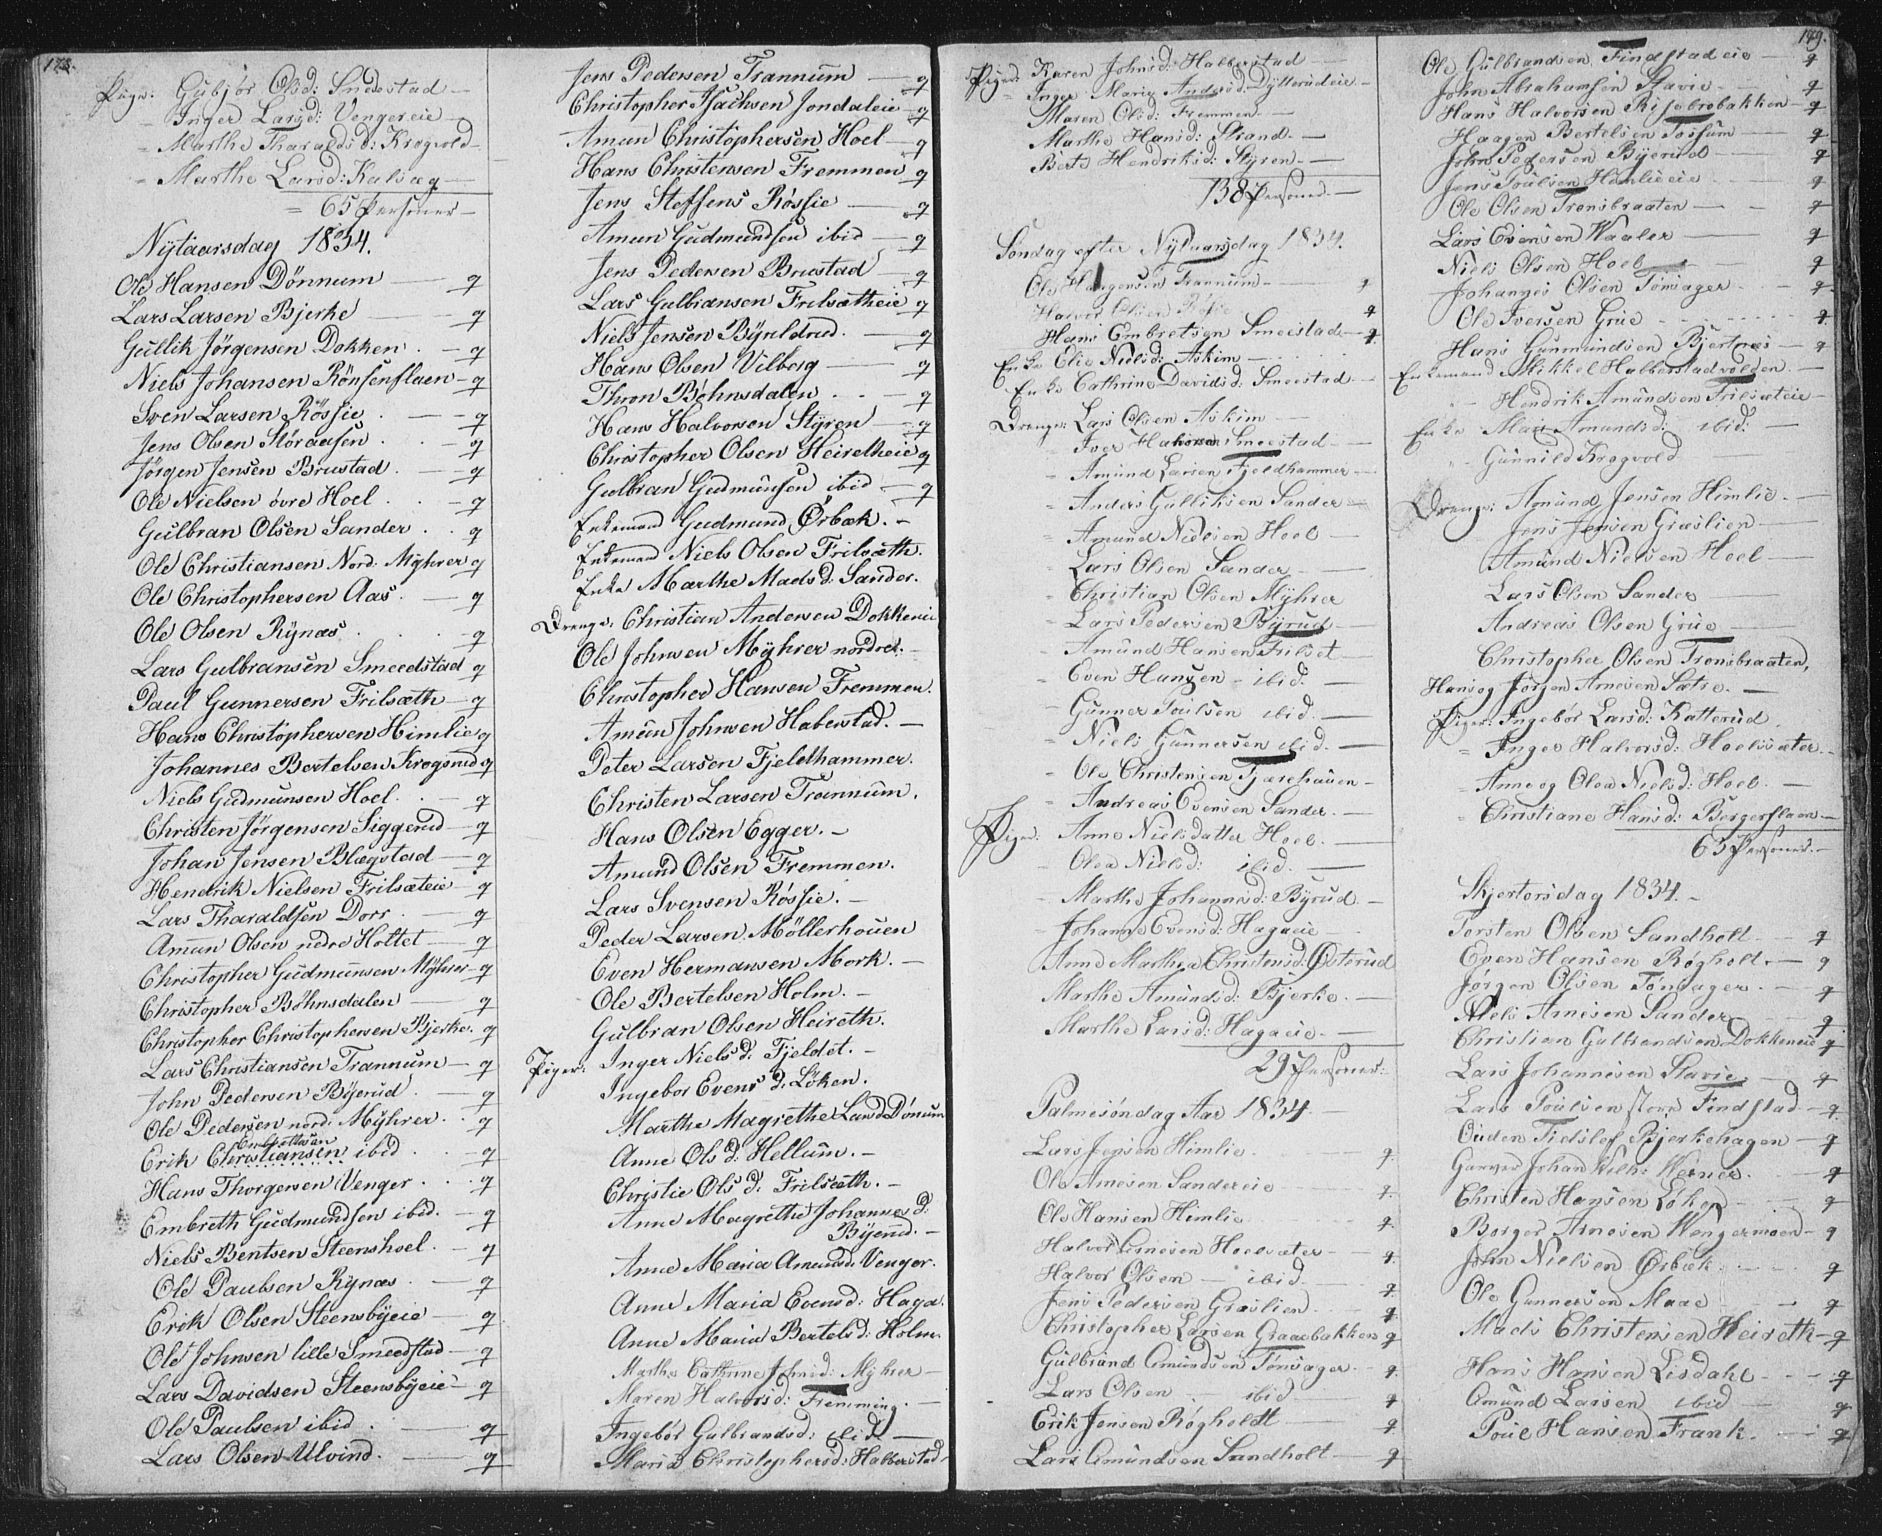 178.
Piger: Gubjør Olsd: Smedestad —
" Inger Larsd: Vengereie —
" Marthe Tharaldsd: Krogvold —
" Marthe Larsd: Kalsæg —
= 65 Personer —
Nytaarsdag 1834.
Ole Hansen Dönnum — g
Lars Larsen Bjerke — g
Gullik Jörgensen Dokken . — g
Niels Johansen Rönsenflaen — g
Sven Larsen Rössie . — g
Jens Olsen Störaasen . — g
Jörgen Jensen Brustad . — g
Ole Nielsen övre Hoel . — g
Gulbran Olsen Sander . . g
Ole Christiansen Nord: Myhrer g
Ole Christophersen Aas . — g
Ole Olsen Rynæs . . . g
Lars Gulbransen Smeedstad g
Paul Gunnersen Frilsæth — g
Hans Christophersen Himlie g
Johannes Bertelsen Krogsrud g
Niels Gudmunsen Hoel . — g
Christen Jörgensen Siggerud — g
Johan Jensen Blegstad — g
Hendrik Nielsen Frilsæteie — g
Lars Tharaldsen Dorr . — g
Amun Olsen nedre Holtet — g
Christopher Gudmunsen Myhrer — g
Christopher Böhnsdalen — g
Christopher Christophersen Bjerke . g
Lars Christiansen Trannum — g
John Pedersen Byerud — g
Ole Pedersen nord: Myhrer . g
Embrettsen
Erik Christiansen ibid . — g
Hans Thorgersen Venger . . g
Embreth Gudmundsen ibid . — g
Niels Bentsen Steenshoel . — g
Ole Paulsen Rynæs . — g
Erik Olsen Steensbyeie — g
Ole Johnsen lille Smeedstad — g
Lars Davidsen Steensbyeie — g
Ole Paulsen ibid . — g
Lars Olsen Ulvind . — g
Jens Pedersen Trannum — g
Christopher Isachsen Jondaleie — g
Amun Christophersen Hoel — g
Hans Christensen Fremmen g
Jens Steffens Røssie — g
Amun Gudmundsen ibid — g
Jens Pedersen Brustad — g
Lars Gulbransen Frilsætheie g
Niels Jensen Byneldrud . — g
Hans Olsen Vilberg — g
Thron Böhnsdalen . . — g
Hans Halvorsen Styren — g
Christopher Olsen Heiretheie g
Gulbran Gudmunsen ibid — g
Enkemand Gudmund Ørbæk . —
Enkemand Niels Olsen Frilsæth .
Enke Marthe Madsd: Sander .
Drenge: Christian Andersen Dokkeneie
Ole Johnsen Myhrer nordre . —
Christopher Hansen Fremmen .
Amun Johnsen Haberstad . —
Peter Larsen Fjeldhammer .
Christen Larsen Trannum .
Hans Olsen Egger . —
Amund Olsen Fremmen .
Lars Svensen Røssie . —
Peder Larsen Möllerhouen
Even Hermansen Mork . —
Ole Bertelsen Holm . —
Gulbran Olsen Heireth .
Piger: Inger Niels d: Fjeldet . —
Ingebor Evens d: Löken .
Marthe Magrethe Lars d Dönnum
Anne Ols d: Hellum . —
Christie Ols d: Frilsæth . —
Anne Magrethe Johannes d:
Byerud . —
Anne Maria Amunsd: Venger .
Anne Maria Evens d: Haga .
Anne Maria Bertels d: Holm .
Marthe Cathrine Johnsd: Myhrer —
Maren Halvorsd: Fremming . —
Ingebör Gulbrandsd: ibid —
Maria Christophersd: Halberstad —
Piger: Karen Johnsd: Halberstad —
" Inger Marie Andersd: Dytterudeie —
Maren Olsd: Fremmen —
Marthe Hansd: Strand . —
Berte Hendriksd: Styren —
138 Personer —
Söndag efter Nytaarsdag 1834.
Ole Haagensen Trannum — g
Halvor Olsen Røsie g
Hans Embretsen Smeestad — g
Enke Elie Nielsd: Askim —
Enke Cathrine Davidsd: Smeestad —
Drenge: Lars Olsen Askim —
" Iver Halvorsen Smeestad —
" Amund Larsen Fjeldhammer —
" Anders Gulliksen Sander —
" Amund Nielsen Hoel —
" Lars Olsen Sander —
" Christian Olsen Myhrer
" Lars Pedersen Byrud —
" Amund Hansen Frilset —
" Even Hansen — ibid . —
" Gunner Poulsen ibid . —
" Niels Gunnersen ibid . —
" Ole Christensen Tjærehauen —
" Andreas Evensen Sander . —
Piger: Anne Nielsdatter Hoel . —
" Olea Nielsd: ibid . —
" Marthe Johannesd: Byrud —
Johanne Evensd: Hagaeie
Anne Marthea Christensd: Østerud
Marthe Amundsd: Bjerke . —
Marthe Larsd: Hagaeie . —
29 Personer: —
Palmesöndag Aar 1834
Lars Jensen Himlie . — g
Ole Arnesen Sandereie — g
Ole Hansen Himlie g
Halvor Arnesen Hoelsæter — g
Halvor Olsen — ibid . g
Jens Pedersen Græslien — g
Christopher Larsen Graaebakken g
Gulbrand Amundsen Tønsager — g
Lars Olsen — ibid — g
Erik Jensen Røgholdt — g
Lars Amundsen Sundholt — g
179.
Ole Gulbrandsen Findstadeie — g
John Abrahamsen Slavie — g
Hans Halvorsen Risebrobakken — g
Haagen Bertelsen Tossum — g
John Pedersen Byerud — g
Jens Poulsen Himlieeie — g
Ole Olsen Tronsbraaten — g
Lars Evensen Waaler — g
Niels Olsen Hoel — g
Johannes Olsen Tönsager — g
Ole Iversen Grüe — g
Hans Gunmundsen Bjertnæs — g
Enkemand Mikkel Halberstadvolden . —
" Hendrik Amundsen Frilsæteie —
Enke Mari Amundsd: ibid: —
" Gunnild Krogvold —
Drenge: Amund Jensen Himlie . —
Jens Jensen Græslien —
Amund Nielsen Hoel —
Lars Olsen Sander —
Andreas Olsen Grüe —
Christopher Olsen Tronsbraaten,
Hans og Jørgen Arnesen Sætre . —
Piger: Ingebör Larsd: Katterud .
" Inger Halvorsd: Hoelsæter . —
Anne og Olea Nielsd: Hoel . —
Christiane Hansd: Borgerflaen —
63 Personer . —
Skjertorsdag 1834. —
Torsten Olsen Sandholt — g
Even Hansen Røgholt . — g
Jørgen Olsen Tönsager . — g
Niels Arnesen Sander g
Christian Gulbrandsen Dokkeneie g
Lars Johannesen Slavie — g
Lars Poulsen store Findstad — g
Ouden Tidslef Bjerkehagen — g
Garver Johan Wilh: Werner . — g
Christen Hansen Løken — g
Borger Arnesen Wengermoen — g
John Nielsen Ørbæk — g
Ole Gunnersen Maae — g
Mads Christensen Heireth — g
Hans Hansen Lisdahl — g
Amund Larsen ibid — g
Poul Hansen Frank . — g